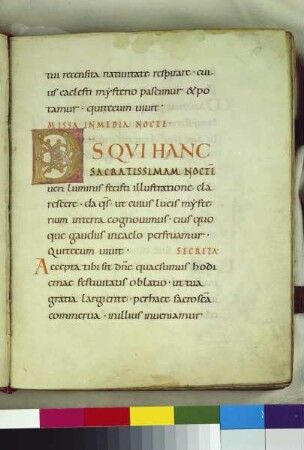 tui recensita nativitate respirare · cui
us caelesti mysterio pascimur & po
tamur · qui tecum vivit ·
MISSA IN MEDIA NOCTE ·
DS QVI HANC
SACRATISSIMAM NOCTĒ
veri luminis fecisti illustratione cla
rescere · da q̄s · ut cuius lucis myste
rium in terra cognovimus · eius quo
que gaudiis in caelo perfruamur ·
Qui tecum vivit · SECRETA
Accepta tibi sit dn̄e quaesumus hodi
ernae festivitatis oblatio · ut tua
gratia largiente · per haec sacrosc̄a
commercia · in illius inveniamur